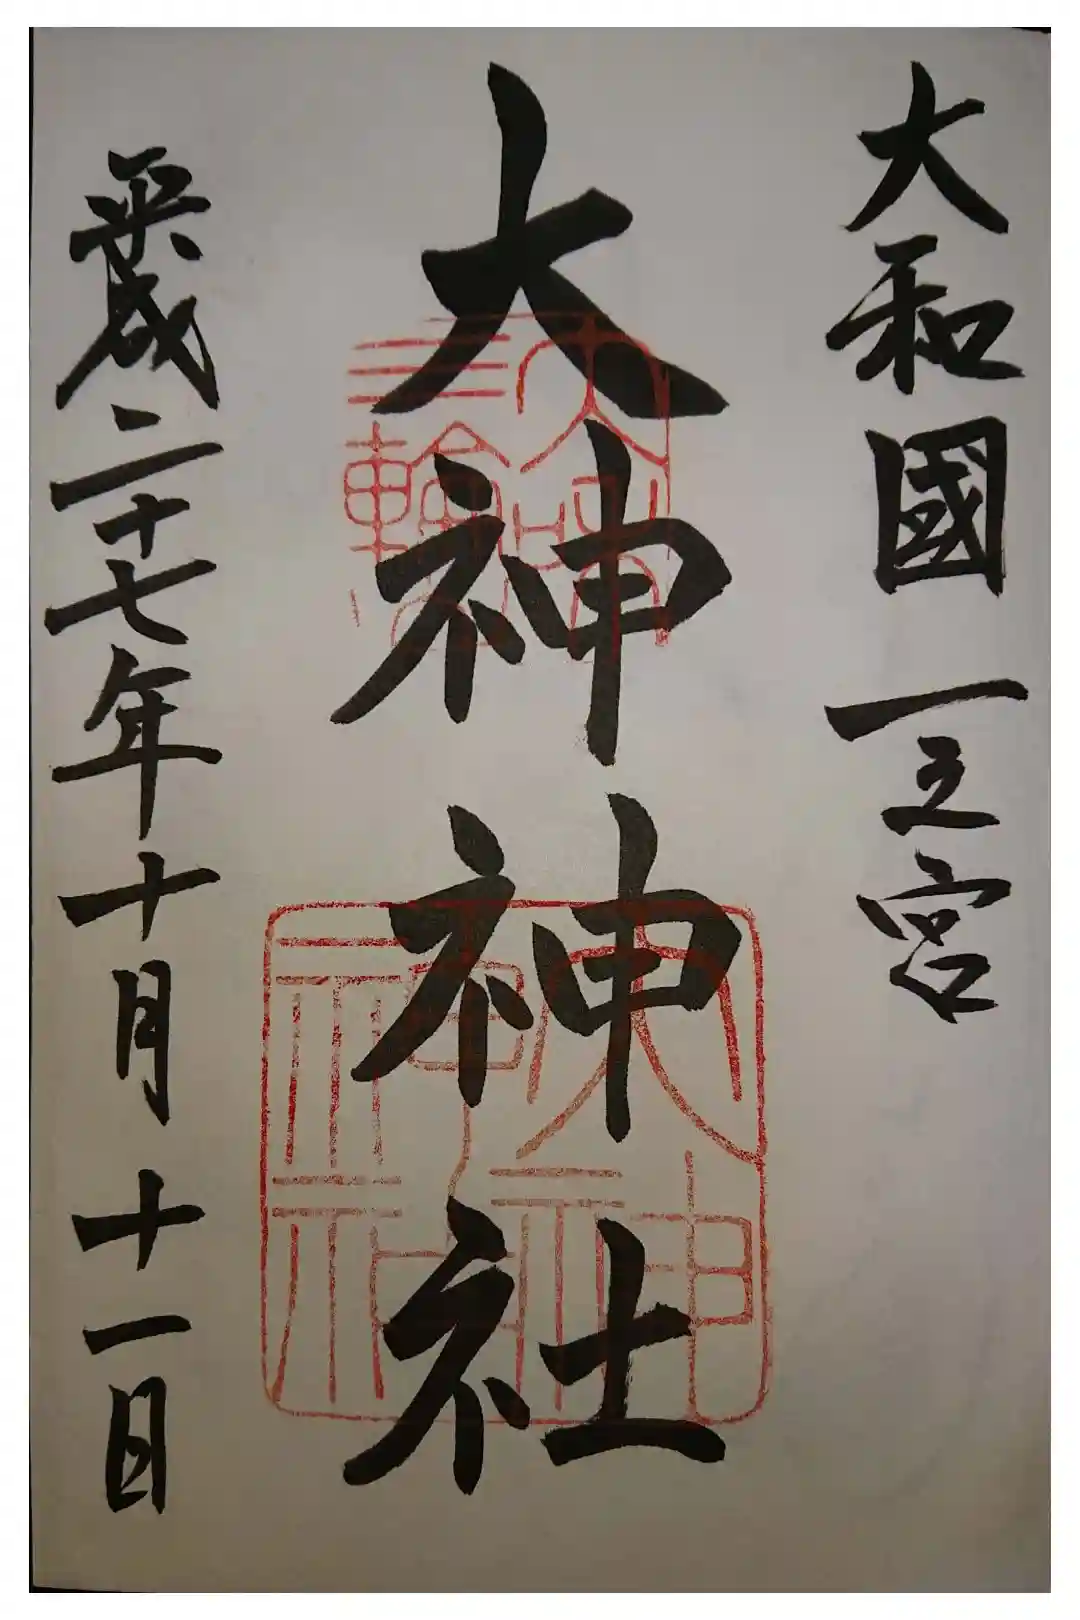 大和國 一之宮
大神神社
平成二十七年十月十一日
三輪
大神神社